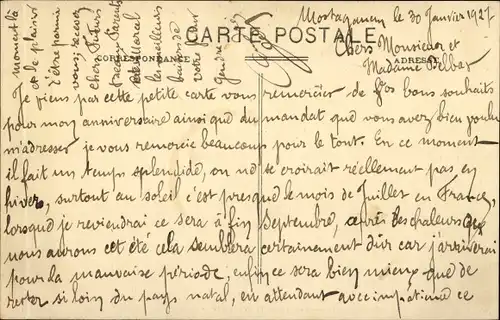 Mostaganem le 30 Janvier 1927
CARTE POSTALE
CORRESPONDANCE
ADRESSE
Chers Monsieur et
Madame
Je viens par cette petite carte vous remercier de vos bons souhaits
pour mon anniversaire ainsi que du mandat que vous avez bien voulu
m'adresser je vous remercie beaucoup pour le tout. En ce moment
il fait un temps splendide, on ne se croirait réellement pas en
hiver, surtout au soleil c'est presque le mois de Juillet en France,
lorsque je reviendrai ce sera à fin Septembre, après les chaleurs que
nous aurons cet été cela semblera certainement dur car j'arriverai
pour la mauvaise période, enfin ce sera bien mieux que de
rester si loin du pays natal, en attendant avec impatience ce
moment là
et ce plaisir
l'être parmi
vous, recevez
chers futurs
Beaux Parents
et Marcel
les meilleurs
baisers de
votre futur
Gendre